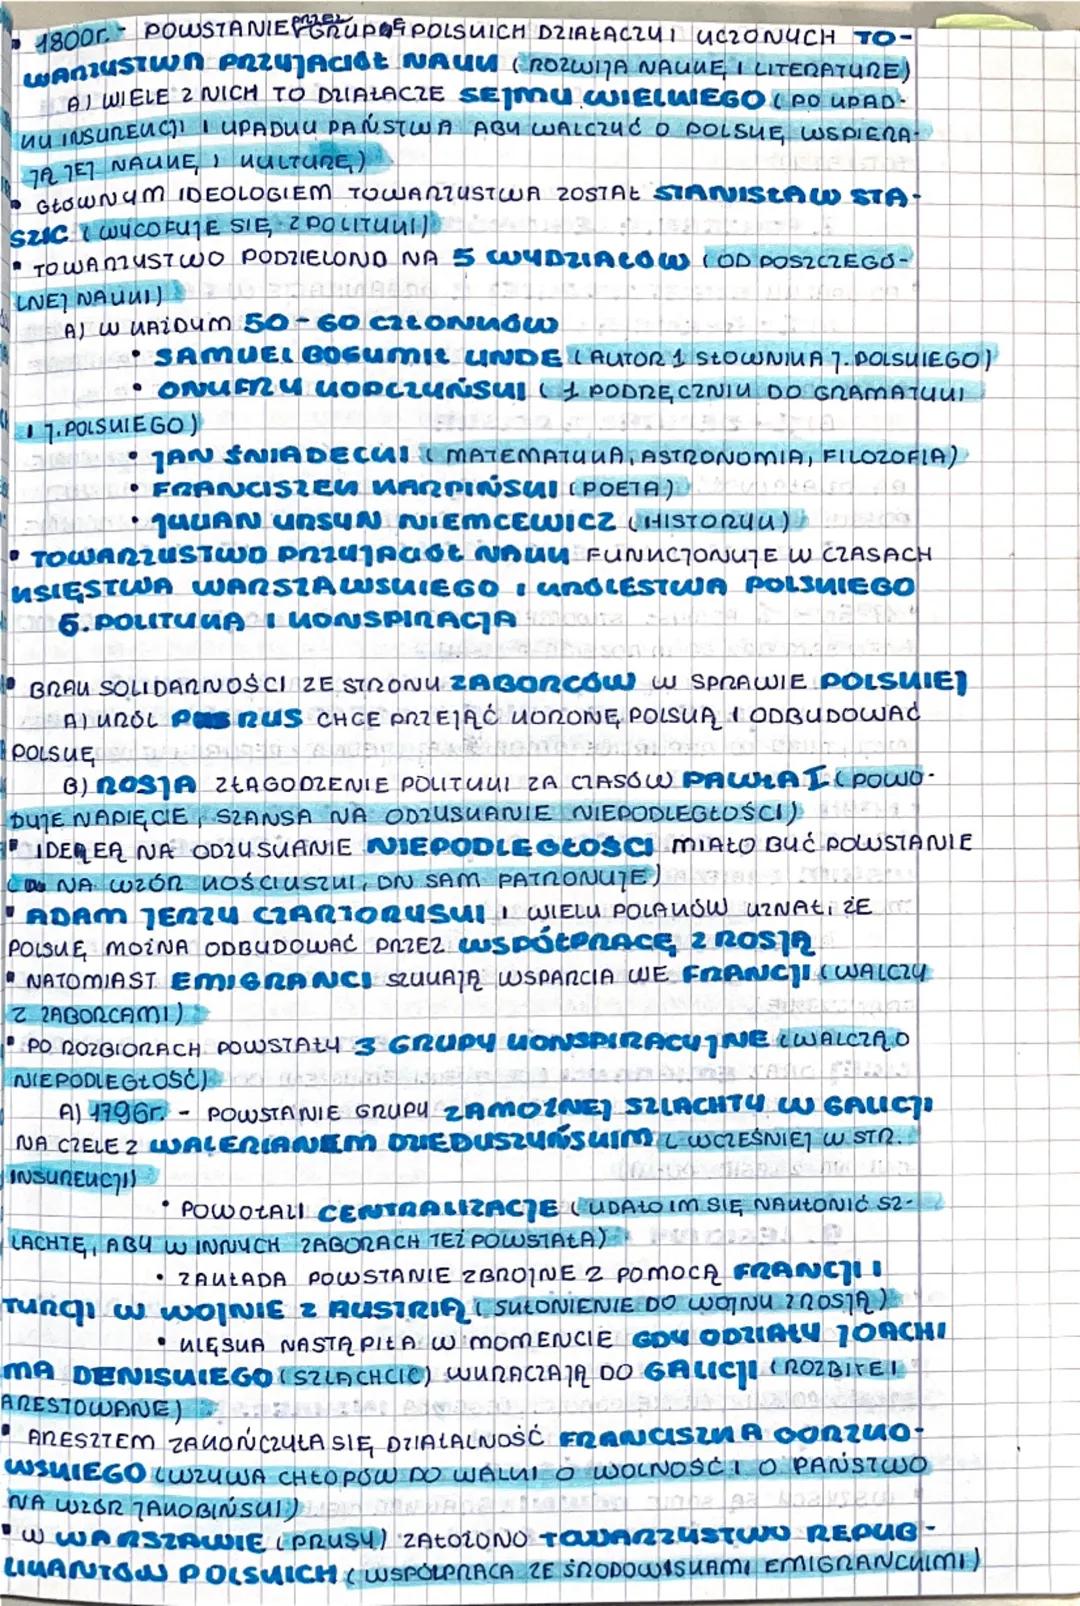 • 1800r. - POWSTANIE PRZEZ GRUPĘ POLSKICH DZIAŁACZY I UCZONYCH TO-
WARZYSTWA PRZYJACIÓŁ NAUK (ROZWIJA NAUKĘ I LITERATURĘ)
A) WIELE Z NICH TO DZIAŁACZE SEJMU WIELKIEGO (PO UPAD-
KU INSUREKCJI I UPADKU PAŃSTWA ABY WALCZYĆ O POLSKĘ, WSPIERA-
JĄ JEJ NAUKĘ, I KULTURĘ)
• GŁÓWNYM IDEOLOGIEM TOWARZYSTWA ZOSTAŁ STANISŁAW STA-
SZIC (WYCOFUJE SIĘ Z POLITYKI)
• TOWARZYSTWO PODZIELONO NA 5 WYDZIAŁÓW (OD POSZCZEGÓ-
LNEJ NAUKI)
A) W KAŻDYM 50-60 CZŁONKÓW
• SAMUEL BOGUMIŁ LINDE (AUTOR 1 SŁOWNIKA J. POLSKIEGO)
• ONUFRY KOPCZYŃSKI (1 PODRĘCZNIK DO GRAMATYKI
I J. POLSKIEGO)
• JAN ŚNIADECKI (MATEMATYKA, ASTRONOMIA, FILOZOFIA)
• FRANCISZEK KARPIŃSKI (POETA)
• JULIAN URSYN NIEMCEWICZ (HISTORYK)
• TOWARZYSTWO PRZYJACIÓŁ NAUK FUNKCJONUJE W CZASACH
KSIĘSTWA WARSZAWSKIEGO I KRÓLESTWA POLSKIEGO
5. POLITYKA I KONSPIRACJA
• BRAK SOLIDARNOŚCI ZE STRONY ZABORCÓW W SPRAWIE POLSKIEJ
A) KRÓL PRUS CHCE PRZEJĄĆ KORONĘ POLSKĄ I ODBUDOWAĆ
POLSKĘ
B) ROSJA ZŁAGODZENIE POLITYKI ZA CZASÓW PAWŁA I (POWO-
DUJE NAPIĘCIE, SZANSA NA ODZYSKANIE NIEPODLEGŁOŚCI)
• IDEEĄ NA ODZYSKANIE NIEPODLEGŁOŚCI MIAŁO BYĆ POWSTANIE
(NA WZÓR KOŚCIUSZKI, ON SAM PATRONUJE)
• ADAM JERZY CZARTORYSKI I WIELU POLAKÓW UZNAŁ, ŻE
POLSKĘ MOŻNA ODBUDOWAĆ PRZEZ WSPÓŁPRACĘ Z ROSJĄ
• NATOMIAST EMIGRANCI SZUKAJĄ WSPARCIA WE FRANCJI (WALCZY
Z ZABORCAMI)
• PO ROZBIORACH POWSTAŁY 3 GRUPY KONSPIRACYJNE (WALCZĄ O
NIEPODLEGŁOŚĆ)
A) 1796r. - POWSTANIE GRUPY ZAMOŻNEJ SZLACHTY W GALICJI
NA CZELE Z WALERIANEM DZIEDUSZYŃSKIM (WCZEŚNIEJ W STR.
INSUREKCJI)
• POWOŁALI CENTRALIZACJE (UDAŁO IM SIĘ NAKŁONIĆ SZ-
LACHTĘ, ABY W INNYCH ZABORACH TEŻ POWSTAŁA)
• ZAKŁADA POWSTANIE ZBROJNE Z POMOCĄ FRANCJI I
TURCJI W WOJNIE Z AUSTRIĄ (SKŁONIENIE DO WOJNY Z ROSJĄ)
• KLĘSKA NASTĄPIŁA W MOMENCIE GDY ODZIAŁY JOACHI
MA DENISKIEGO (SZLACHCIC) WKRACZAJĄ DO GALICJI (ROZBITE I
ARESTOWANE)
• ARESZTEM ZAKOŃCZYŁA SIĘ DZIAŁALNOŚĆ FRANCISZKA GORZKO-
WSKIEGO (WZYWA CHŁOPÓW DO WALKI O WOLNOŚĆ I O PAŃSTWO
NA WZÓR JAKOBIŃSKI)
• W WARSZAWIE (PRUSY) ZAŁOŻONO TOWARZYSTWO REPUB-
LIKANTÓW POLSKICH (WSPÓŁPRACA ZE ŚRODOWISKAMI EMIGRANCKIMI)